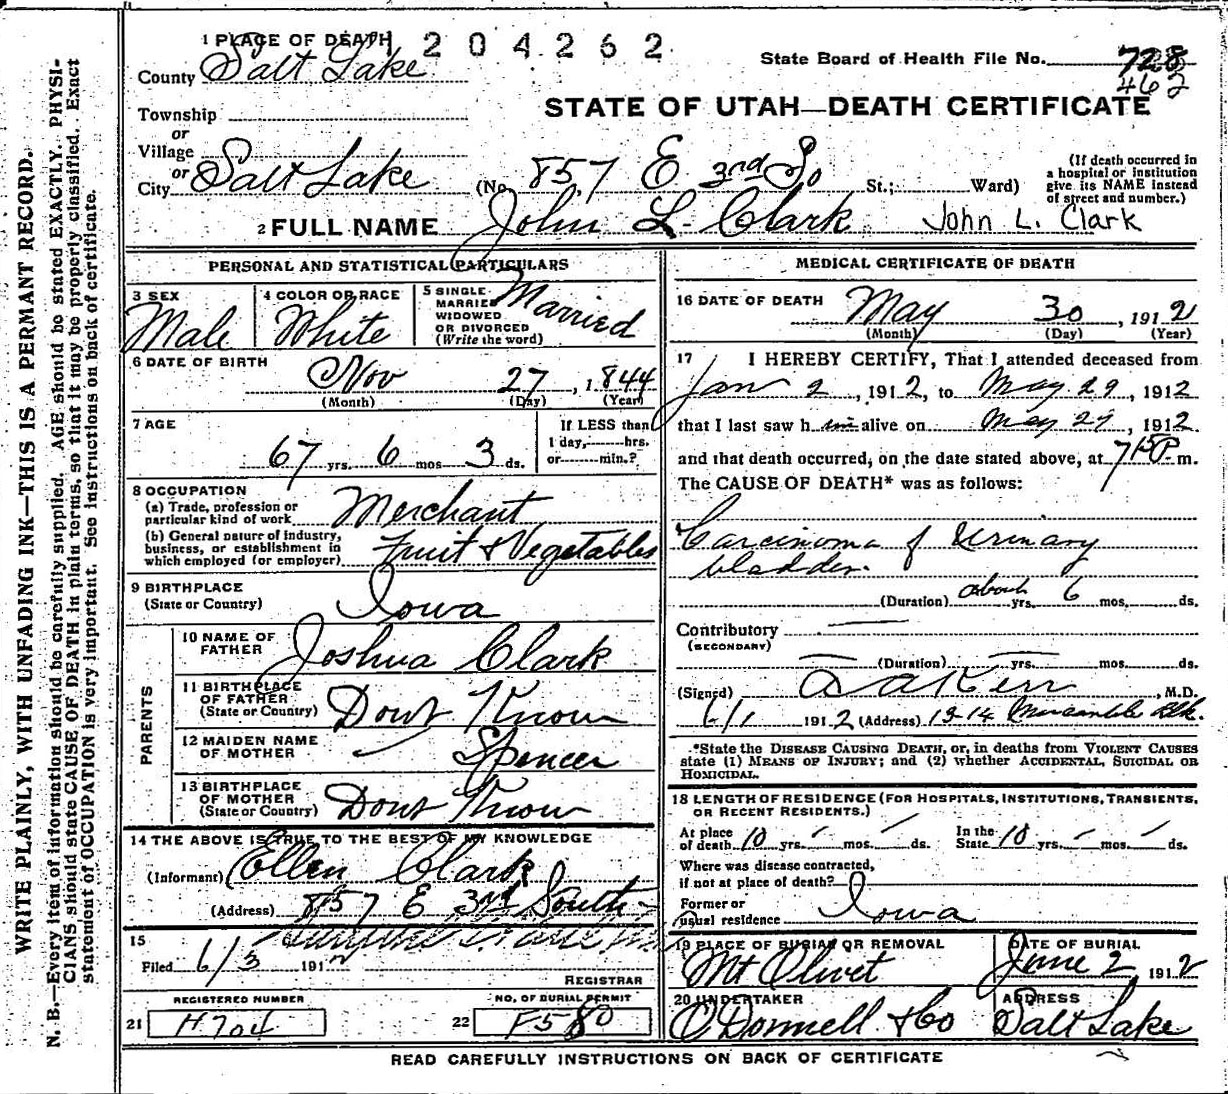 WRITE PLAINLY, WITH UNFADING INK—THIS IS A PERMANT RECORD.
N. B.—Every item of information should be carefully supplied. AGE should be stated EXACTLY. PHYSI-
CIANS should state CAUSE OF DEATH in plain terms, so that it may be properly classified. Exact
statement of OCCUPATION is very important. See instructions on back of certificate.
1 PLACE OF DEATH 204262
County Salt Lake
State Board of Health File No. 728
462
STATE OF UTAH—DEATH CERTIFICATE
Township
or
Village
or
City Salt Lake (No. 857 E 3rd So St.; Ward)
(If death occurred in
a hospital or institution
give its NAME instead
of street and number.)
2 FULL NAME John L. Clark John L. Clark
PERSONAL AND STATISTICAL PARTICULARS
3 SEX Male
4 COLOR OR RACE White
5 SINGLE
MARRIED
WIDOWED
OR DIVORCED
(Write the word) Married
6 DATE OF BIRTH
Nov 27, 1844
(Month) (Day) (Year)
7 AGE
67 yrs. 6 mos 3 ds.
If LESS than
1 day, hrs.
or min.?
8 OCCUPATION
(a) Trade, profession or
particular kind of work Merchant
(b) General nature of industry,
business, or establishment in
which employed (or employer) Fruit & Vegetables
9 BIRTHPLACE
(State or Country) Iowa
PARENTS
10 NAME OF
FATHER Joshua Clark
11 BIRTHPLACE
OF FATHER
(State or Country) Dont Know
12 MAIDEN NAME
OF MOTHER Spencer
13 BIRTHPLACE
OF MOTHER
(State or Country) Dont Know
14 THE ABOVE IS TRUE TO THE BEST OF MY KNOWLEDGE
(Informant) Ellen Clark
(Address) 857 E 3rd South
15
Filed 6/3 1912
REGISTRAR
REGISTERED NUMBER
21 H704
NO. OF BURIAL PERMIT
22 F580
MEDICAL CERTIFICATE OF DEATH
16 DATE OF DEATH
May 30, 1912
(Month) (Day) (Year)
17 I HEREBY CERTIFY, That I attended deceased from
Jan 2, 1912, to May 29, 1912
that I last saw h im alive on May 29, 1912
and that death occurred, on the date stated above, at 7 15 P. m.
The CAUSE OF DEATH* was as follows:
Carcinoma of Urinary
bladder.
(Duration) about yrs. 6 mos. ds.
Contributory
(SECONDARY)
(Duration) yrs. mos. ds.
(Signed) Kerr, M.D.
6/1 1912 (Address) 13-14 Mercantile Blk.
*State the DISEASE CAUSING DEATH, or, in deaths from VIOLENT CAUSES
state (1) MEANS OF INJURY; and (2) whether ACCIDENTAL, SUICIDAL OR
HOMICIDAL.
18 LENGTH OF RESIDENCE (FOR HOSPITALS, INSTITUTIONS, TRANSIENTS,
OR RECENT RESIDENTS.)
At place
of death 10 yrs. mos. ds.
In the
State 10 yrs. mos. ds.
Where was disease contracted,
if not at place of death?
Former or
usual residence Iowa
19 PLACE OF BURIAL OR REMOVAL
Mt Olivet
DATE OF BURIAL
June 2 1912
20 UNDERTAKER
O'Donnell & Co
ADDRESS
Salt Lake
READ CAREFULLY INSTRUCTIONS ON BACK OF CERTIFICATE